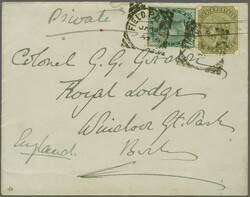 Private
FIELD
Colonel G. G. Gordon
Royal Lodge
Windsor Gt. Park
England